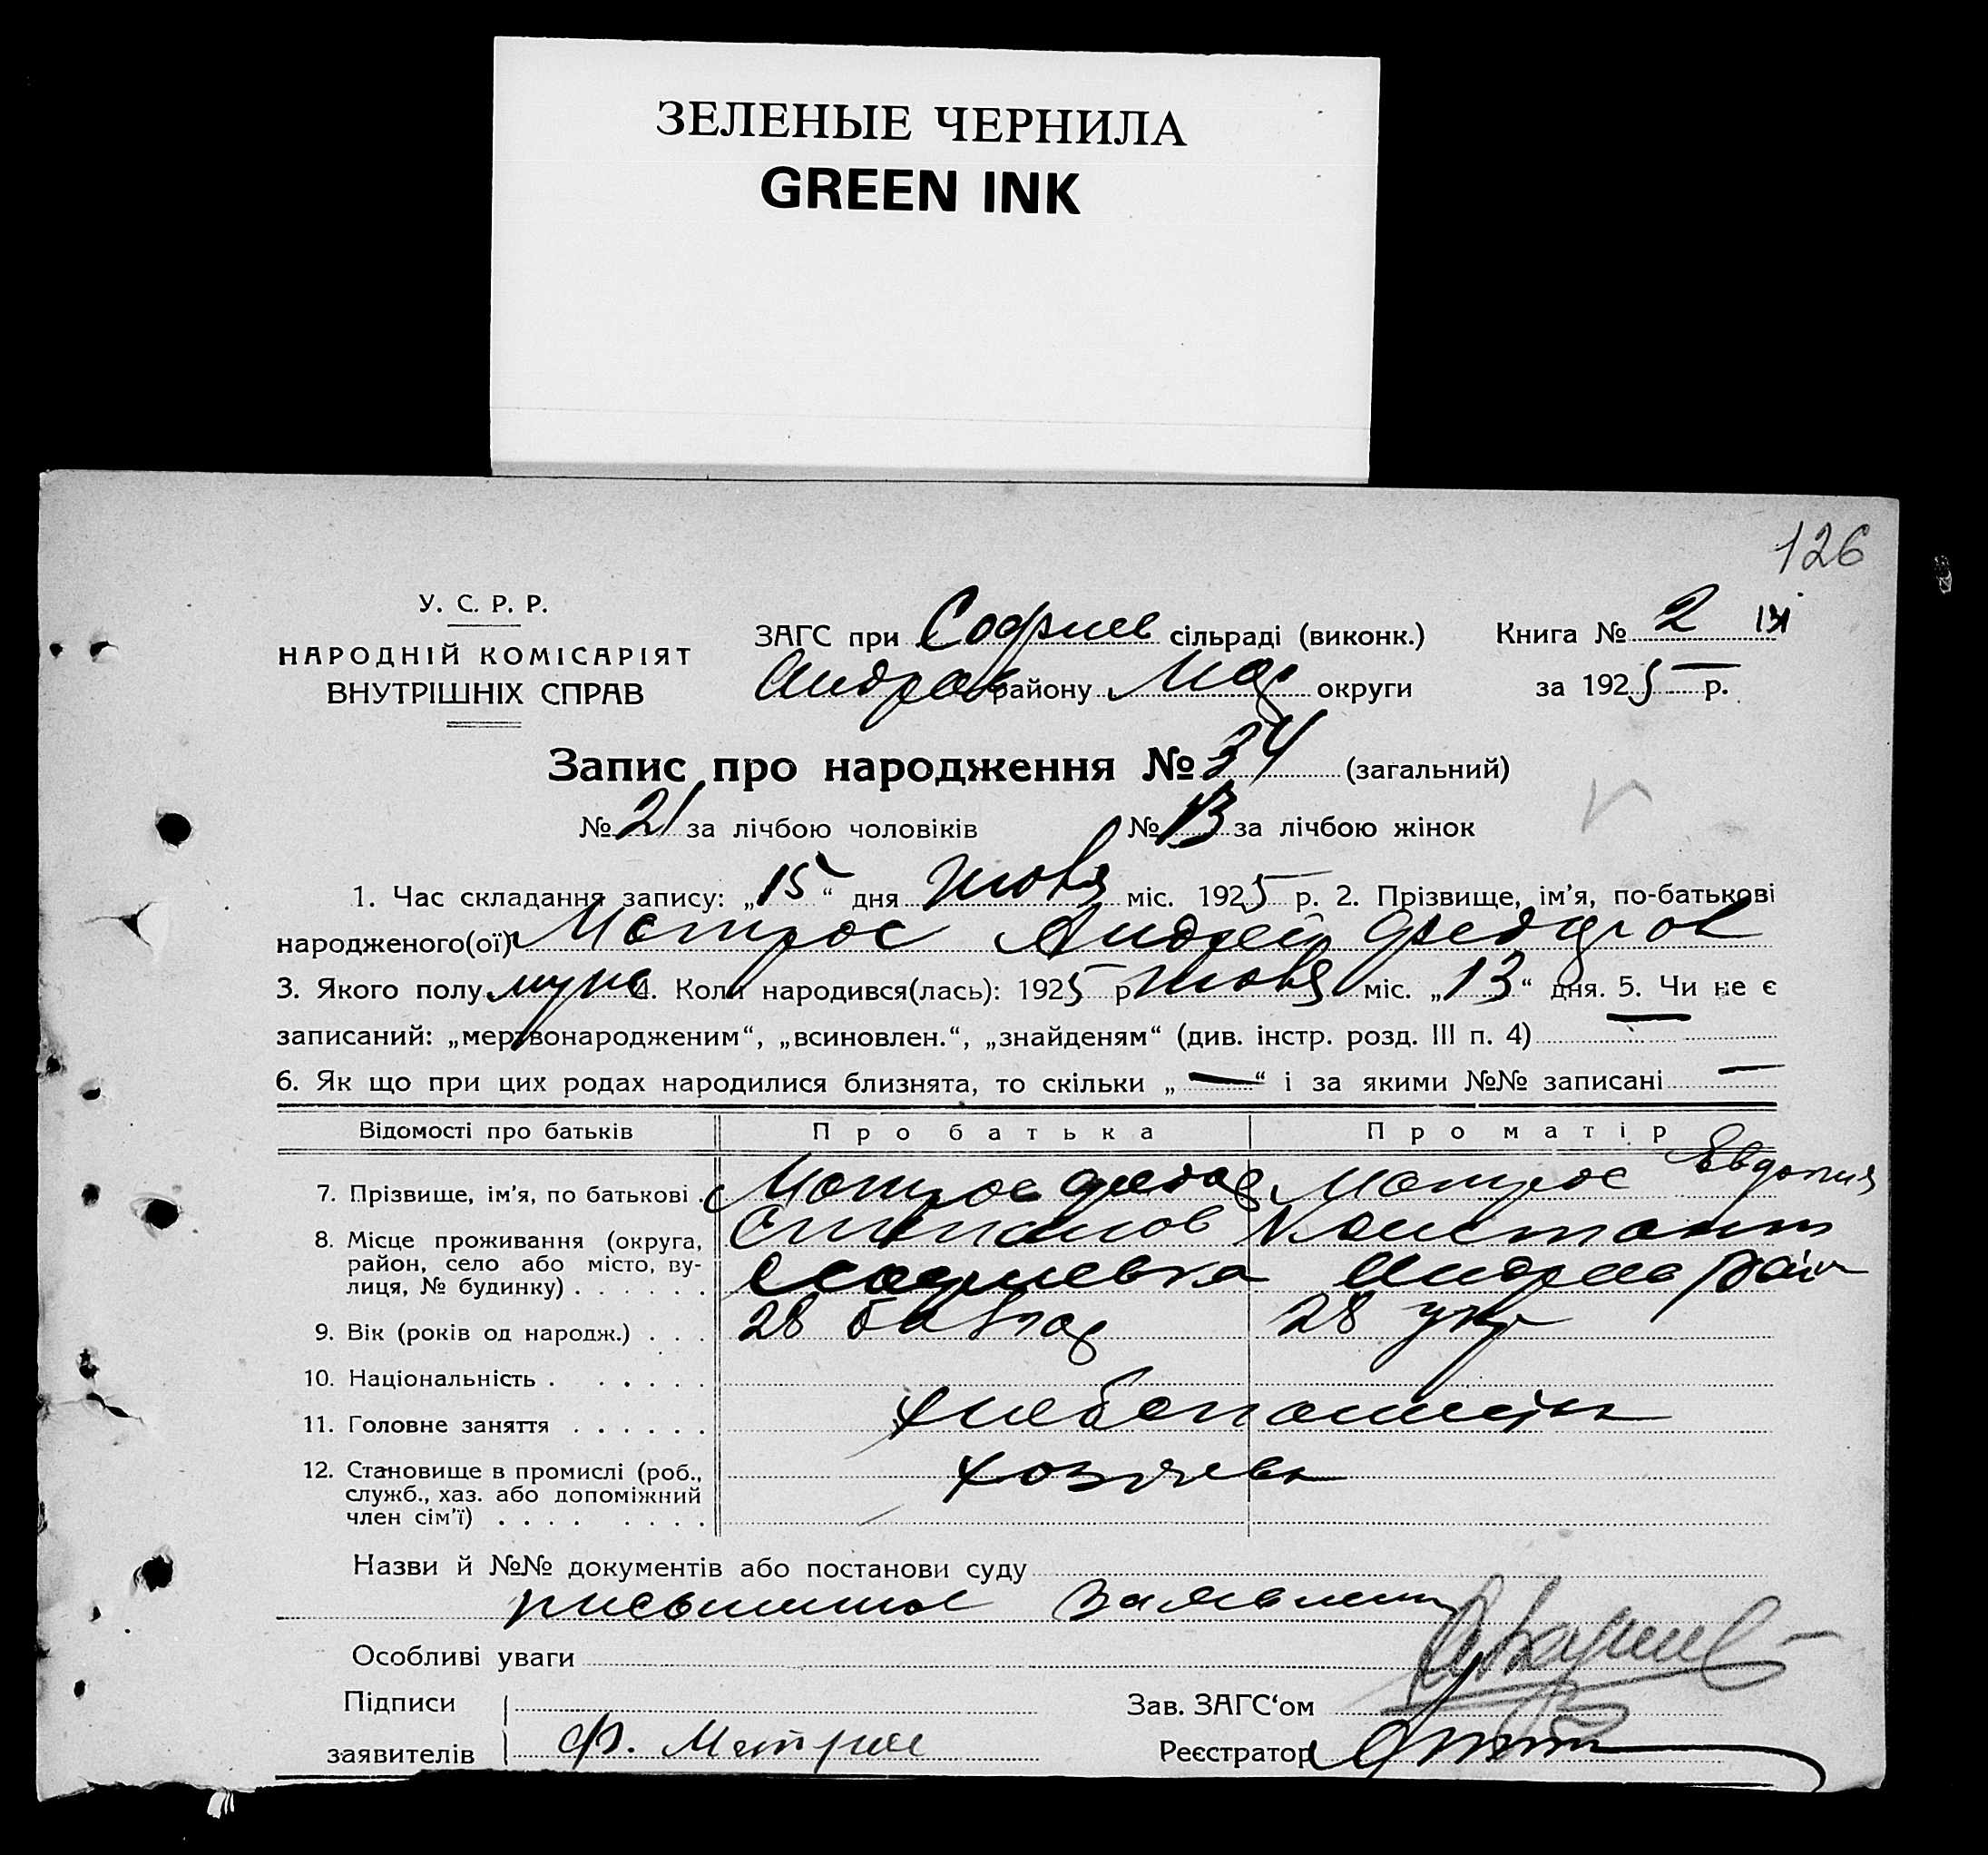 ЗЕЛЕНЫЕ ЧЕРНИЛА
GREEN INK
126
У. С. Р. Р.
НАРОДНІЙ КОМІСАРІЯТ
ВНУТРІШНІХ СПРАВ
ЗАГС при Софиев сільраді (виконк.) Книга № 2
Андреев району Мар округи за 1925 р.
Запис про народження № 34 (загальний)
№ 21 за лічбою чоловіків № 13 за лічбою жінок
1. Час складання запису: „15“ дня міс. 1925 р. 2. Прізвище, ім'я, по-батькові
народженого(ої) Матрос Андрей Федоров
3. Якого полу муж 4. Коли народився(лась): 1925 р. міс. „13“ дня. 5. Чи не є
записаний: „мертвонародженим“, „всиновлен.“, „знайденям“ (див. інстр. розд. III п. 4) —
6. Як що при цих родах народилися близнята, то скільки „—“ і за якими №№ записані —
Відомості про батьків Про батька Про матір
7. Прізвище, ім'я, по батькові . Матрос Федор Матрос Евдокия
Степанов Констант
8. Місце проживання (округа, район, село або місто, вулиця, № будинку) . . . . . . Софиевка Андреев рай
9. Вік (років од народж.) . . . 28 28 укр
10. Національність . . . . . .
11. Головне заняття . . . . . . хлебопашец
12. Становище в промислі (роб., служб., хаз. або допоміжний член сім'ї) . . . . . . . .
Назви й №№ документів або постанови суду
Особливі уваги
Підписи Зав. ЗАГС‘ом
заявителів Ф. Матрос Реєстратор